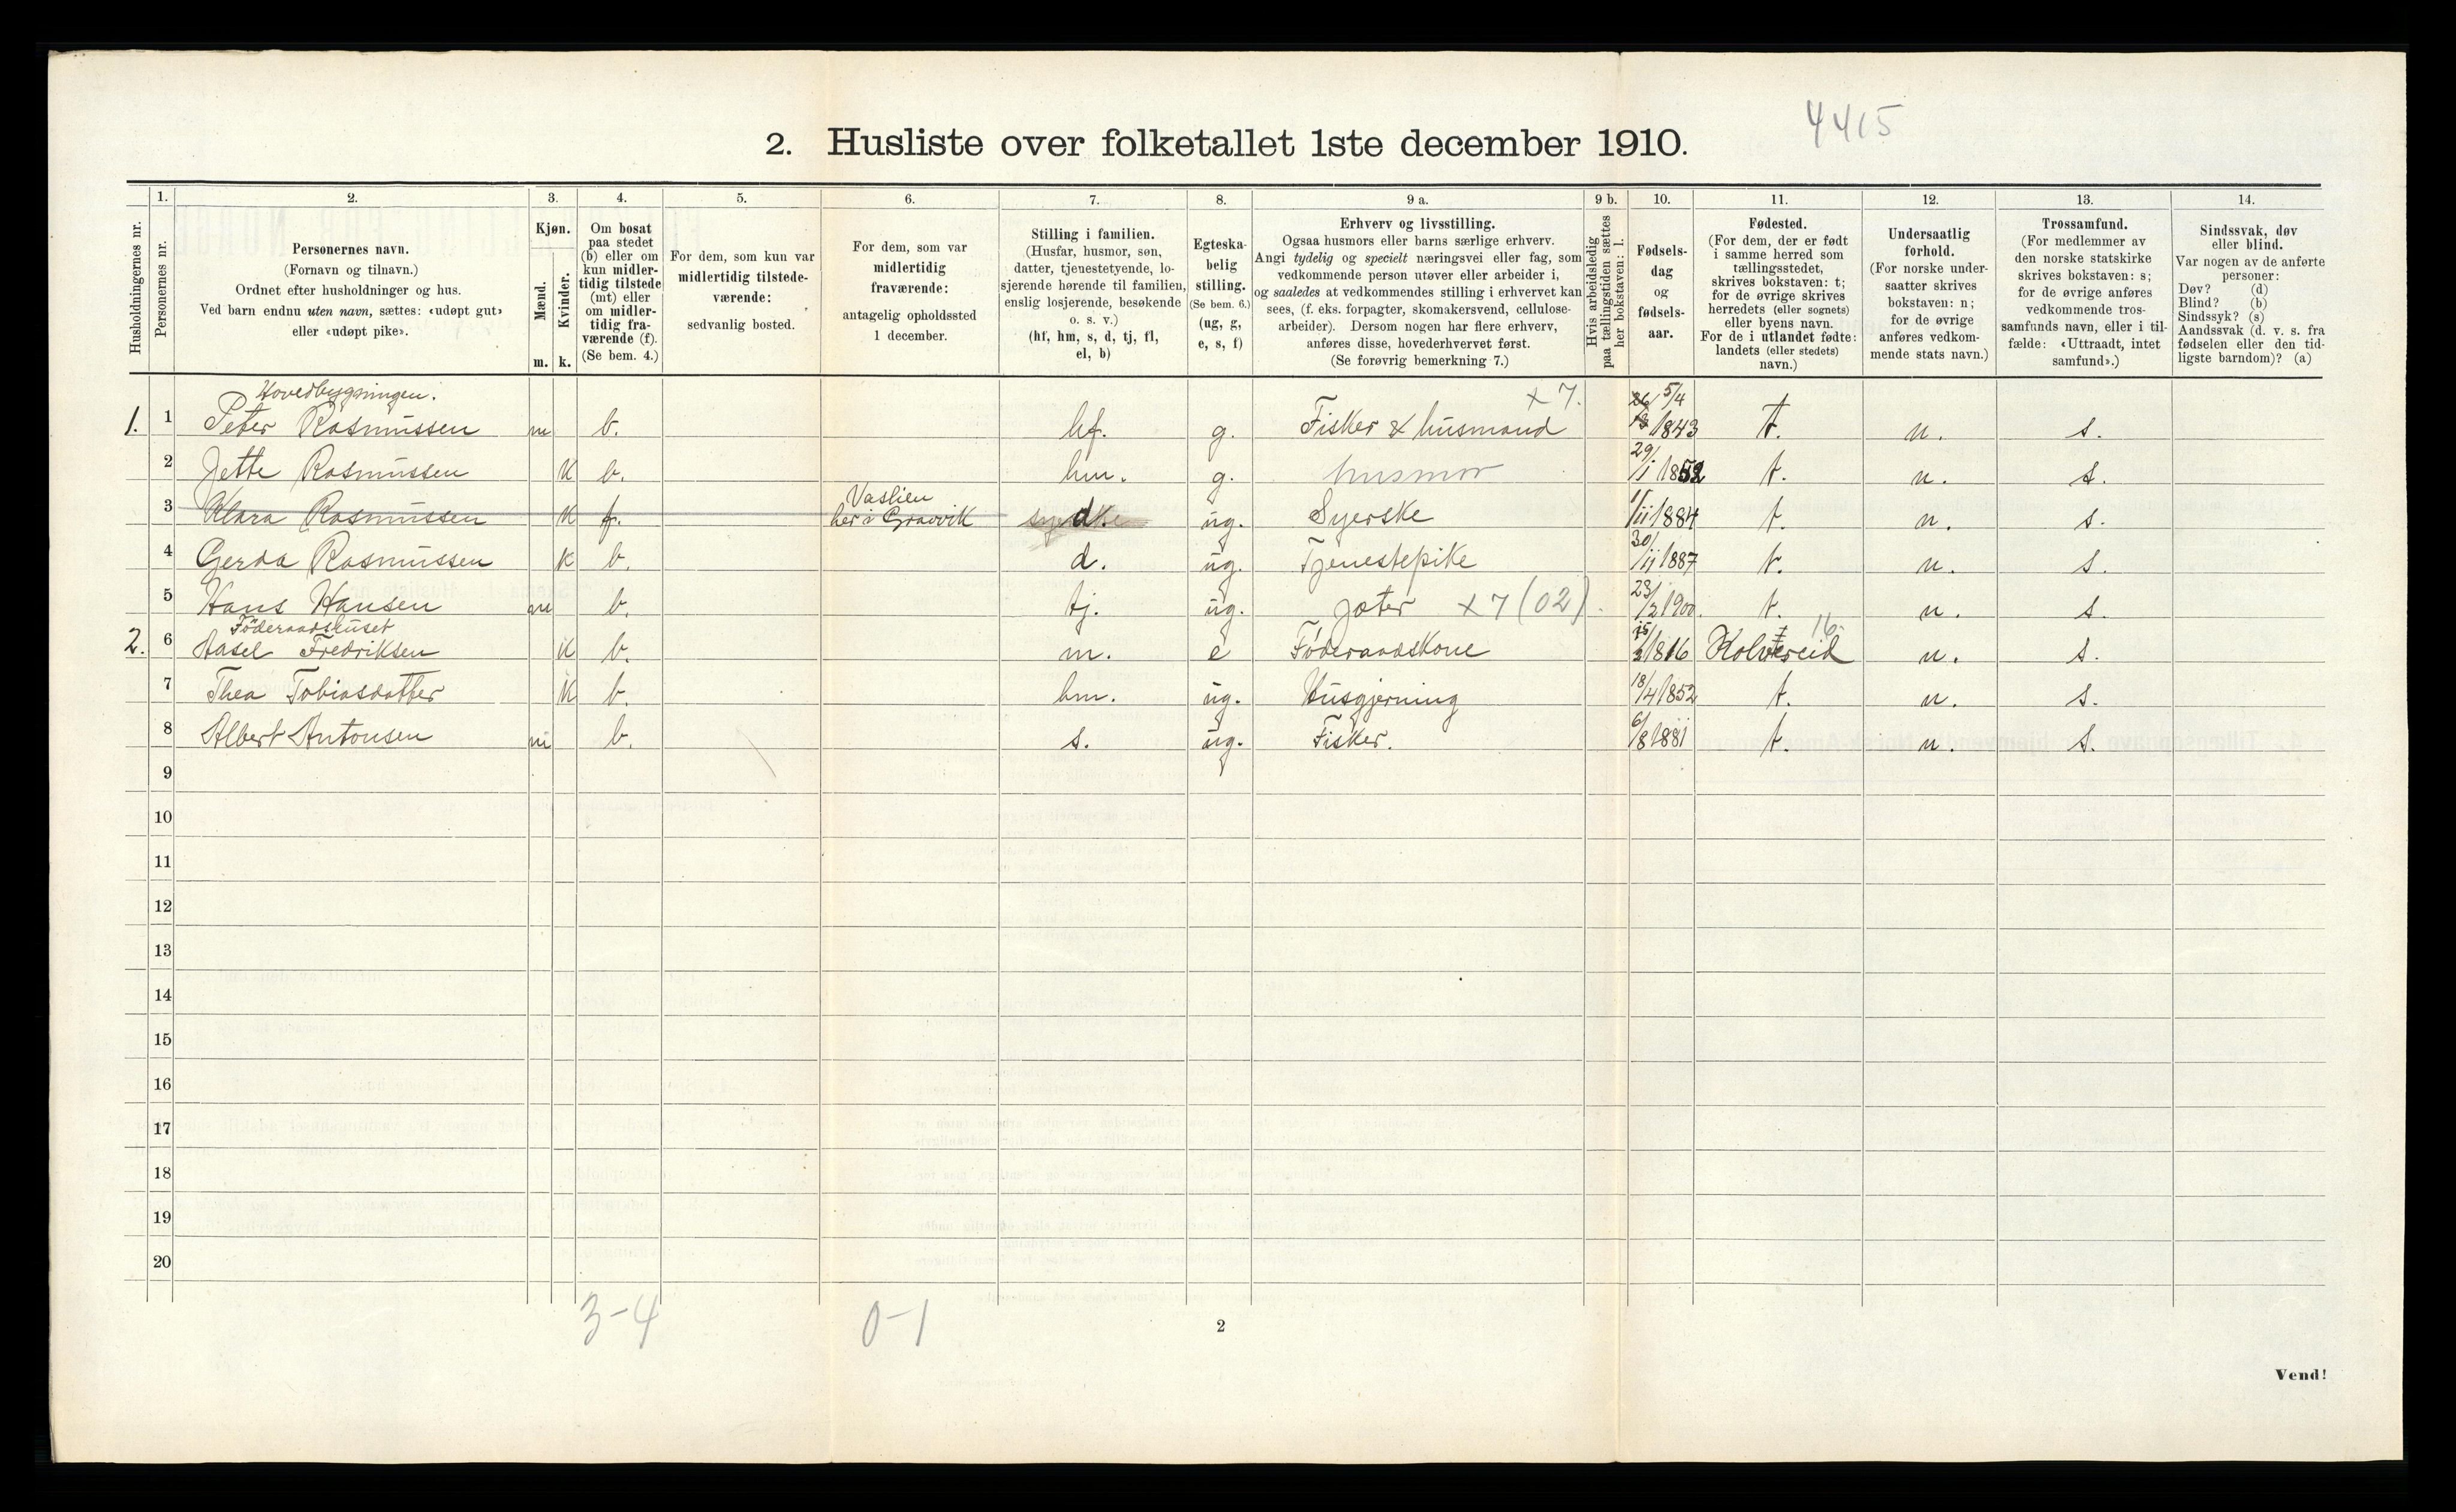 4415
2. Husliste over folketallet 1ste december 1910.
Husholdningernes nr.
1.
Personernes nr.
2.
Personernes navn.
(Fornavn og tilnavn.)
Ordnet efter husholdninger og hus.
Ved barn endnu uten navn, sættes: «udøpt gut»
eller «udøpt pike».
3.
Kjøn.
Mænd.
m.
Kvinder.
k.
4.
Om bosat
paa stedet
(b) eller om
kun midler-
tidig tilstede
(mt) eller
om midler-
tidig fra-
værende (f).
(Se bem. 4.)
5.
For dem, som kun var
midlertidig tilstede-
værende:
sedvanlig bosted.
6.
For dem, som var
midlertidig
fraværende:
antagelig opholdssted
1 december.
7.
Stilling i familien.
(Husfar, husmor, søn,
datter, tjenestetyende, lo-
sjerende hørende til familien,
enslig losjerende, besøkende
o. s. v.)
(hf, hm, s, d, tj, fl,
el, b)
8.
Egteska-
belig
stilling.
(Se bem. 6.)
(ug, g,
e, s, f)
9 a.
Erhverv og livsstilling.
Ogsaa husmors eller barns særlige erhverv.
Angi tydelig og specielt næringsvei eller fag, som
vedkommende person utøver eller arbeider i,
og saaledes at vedkommendes stilling i erhvervet kan
sees, (f. eks. forpagter, skomakersvend, cellulose-
arbeider). Dersom nogen har flere erhverv,
anføres disse, hovederhvervet først.
(Se forøvrig bemerkning 7.)
9 b.
Hvis arbeidsledig
paa tællingstiden sættes
her bokstaven: l.
10.
Fødsels-
dag
og
fødsels-
aar.
11.
Fødested.
(For dem, der er født
i samme herred som
tællingsstedet,
skrives bokstaven: t;
for de øvrige skrives
herredets (eller sognets)
eller byens navn.
For de i utlandet fødte:
landets (eller stedets)
navn.)
12.
Undersaatlig
forhold.
(For norske under-
saatter skrives
bokstaven: n;
for de øvrige
anføres vedkom-
mende stats navn.)
13.
Trossamfund.
(For medlemmer av
den norske statskirke
skrives bokstaven: s;
for de øvrige anføres
vedkommende tros-
samfunds navn, eller i til-
fælde: «Uttraadt, intet
samfund».)
14.
Sindssvak, døv
eller blind.
Var nogen av de anførte
personer:
Døv? (d)
Blind? (b)
Sindssyk? (s)
Aandssvak (d. v. s. fra
fødselen eller den tid-
ligste barndom)? (a)
Hovedbygningen.
x 7.
1. 1 Peter Rasmussen m b. hf. g. Fisker & husmand 5/4 1843 t. n. s.
2 Jette Rasmussen k b. hm. g. husmor 29/1 1852 t. n. s.
Vaslien
3 Klara Rasmussen k f. her i Gravvik d. ug. Syerske /11 1884 t. n. s.
4 Gerda Rasmussen k b. d. ug. Tjenestepike 30/11 1887 t. n. s.
5 Hans Hansen m b. tj. ug. Jæter x 7 (02). 23/2 1900. t. n. s.
Föderaadshuset
16.
2. 6 Aasel Fredriksen k b. m. e Føderaadskone 15/2 1816 Kolvereid n. s.
7 Thea Tobiasdatter k b. hm. ug. Husgjerning 18/4 1852 t. n. s.
8 Albert Antonsen m b. s. ug. Fisker. 6/8 1881 t. n. s.
9
10
11
12
13
14
15
16
17
18
19
20
3-4 0-1
2
Vend!